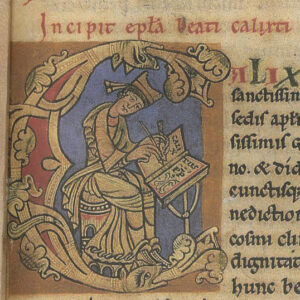 Incipit epła Beati calixti
ALIX
sanctissim
sedis apłi
sissimis g
no. & dic
cunctisq
nedictíon
cosmi cli
dignitat
hunc be